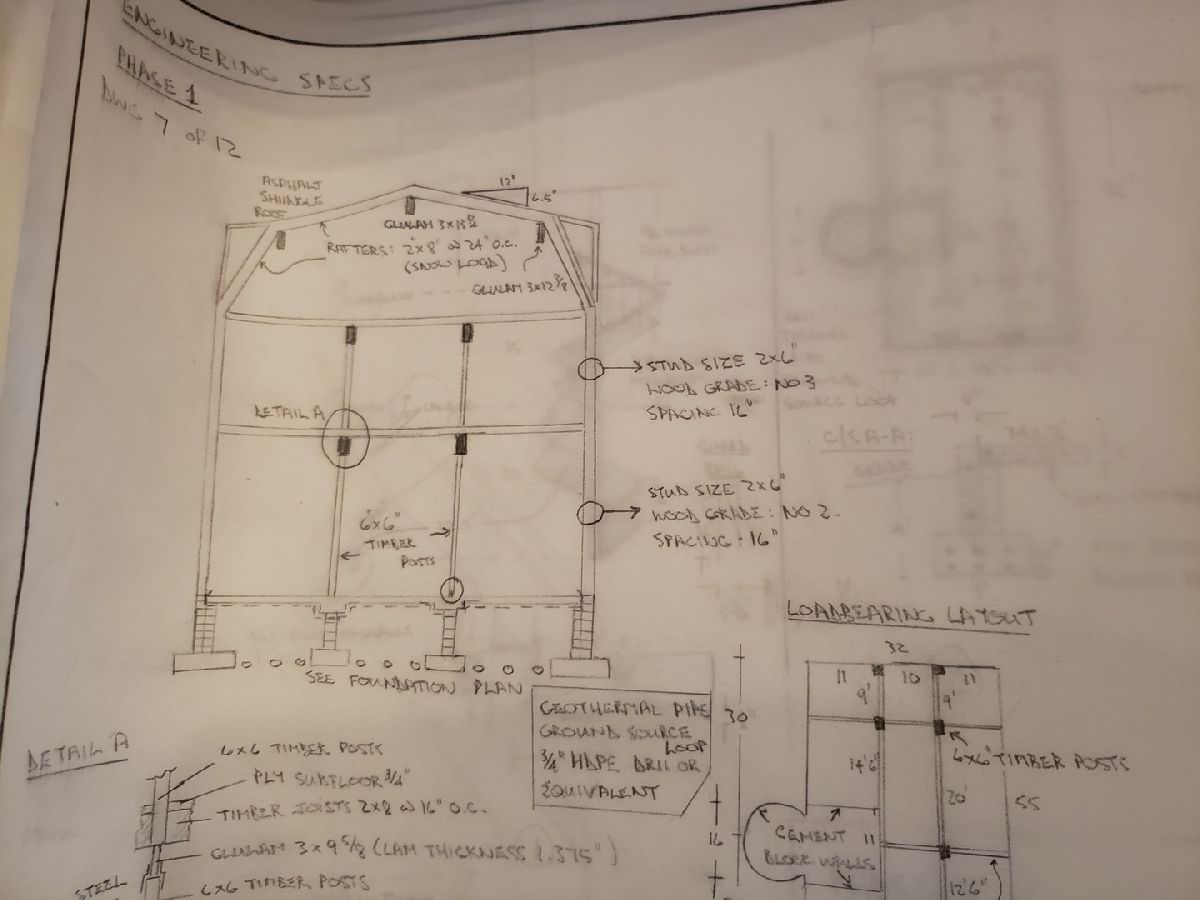 ENGINEERING SPECS
PHASE 1
DWG 7 of 12
ASPHALT
SHINGLE
ROOF
12"
6.5"
GLULAM 3x13
RAFTERS: 2"x8" @ 24" O.C.
(SNOW LOAD)
GLULAM 3x12
STUD SIZE 2x6"
WOOD GRADE: NO 3
SPACING 16"
DETAIL A
STUD SIZE 2x6"
WOOD GRADE: NO 2
SPACING: 16"
6x6"
TIMBER
POSTS
SEE FOUNDATION PLAN
GEOTHERMAL PIPE
GROUND SOURCE
LOOP
3/4" HDPE DR11 OR
EQUIVALENT
LOADBEARING LAYOUT
32
11 10 11
9' 9'
30
6x6" TIMBER POSTS
14'6"
20'
55
16
CEMENT
BLOCK WALLS
11
12'6"
DETAIL A
6x6 TIMBER POSTS
PLY SUBFLOOR 3/4"
TIMBER JOISTS 2x8 @ 16" O.C.
GLULAM 3 x 9 5/8 (LAM THICKNESS 1.375")
STEEL
6x6 TIMBER POSTS
C/S A-A:
GRADE
SOURCE LOOP